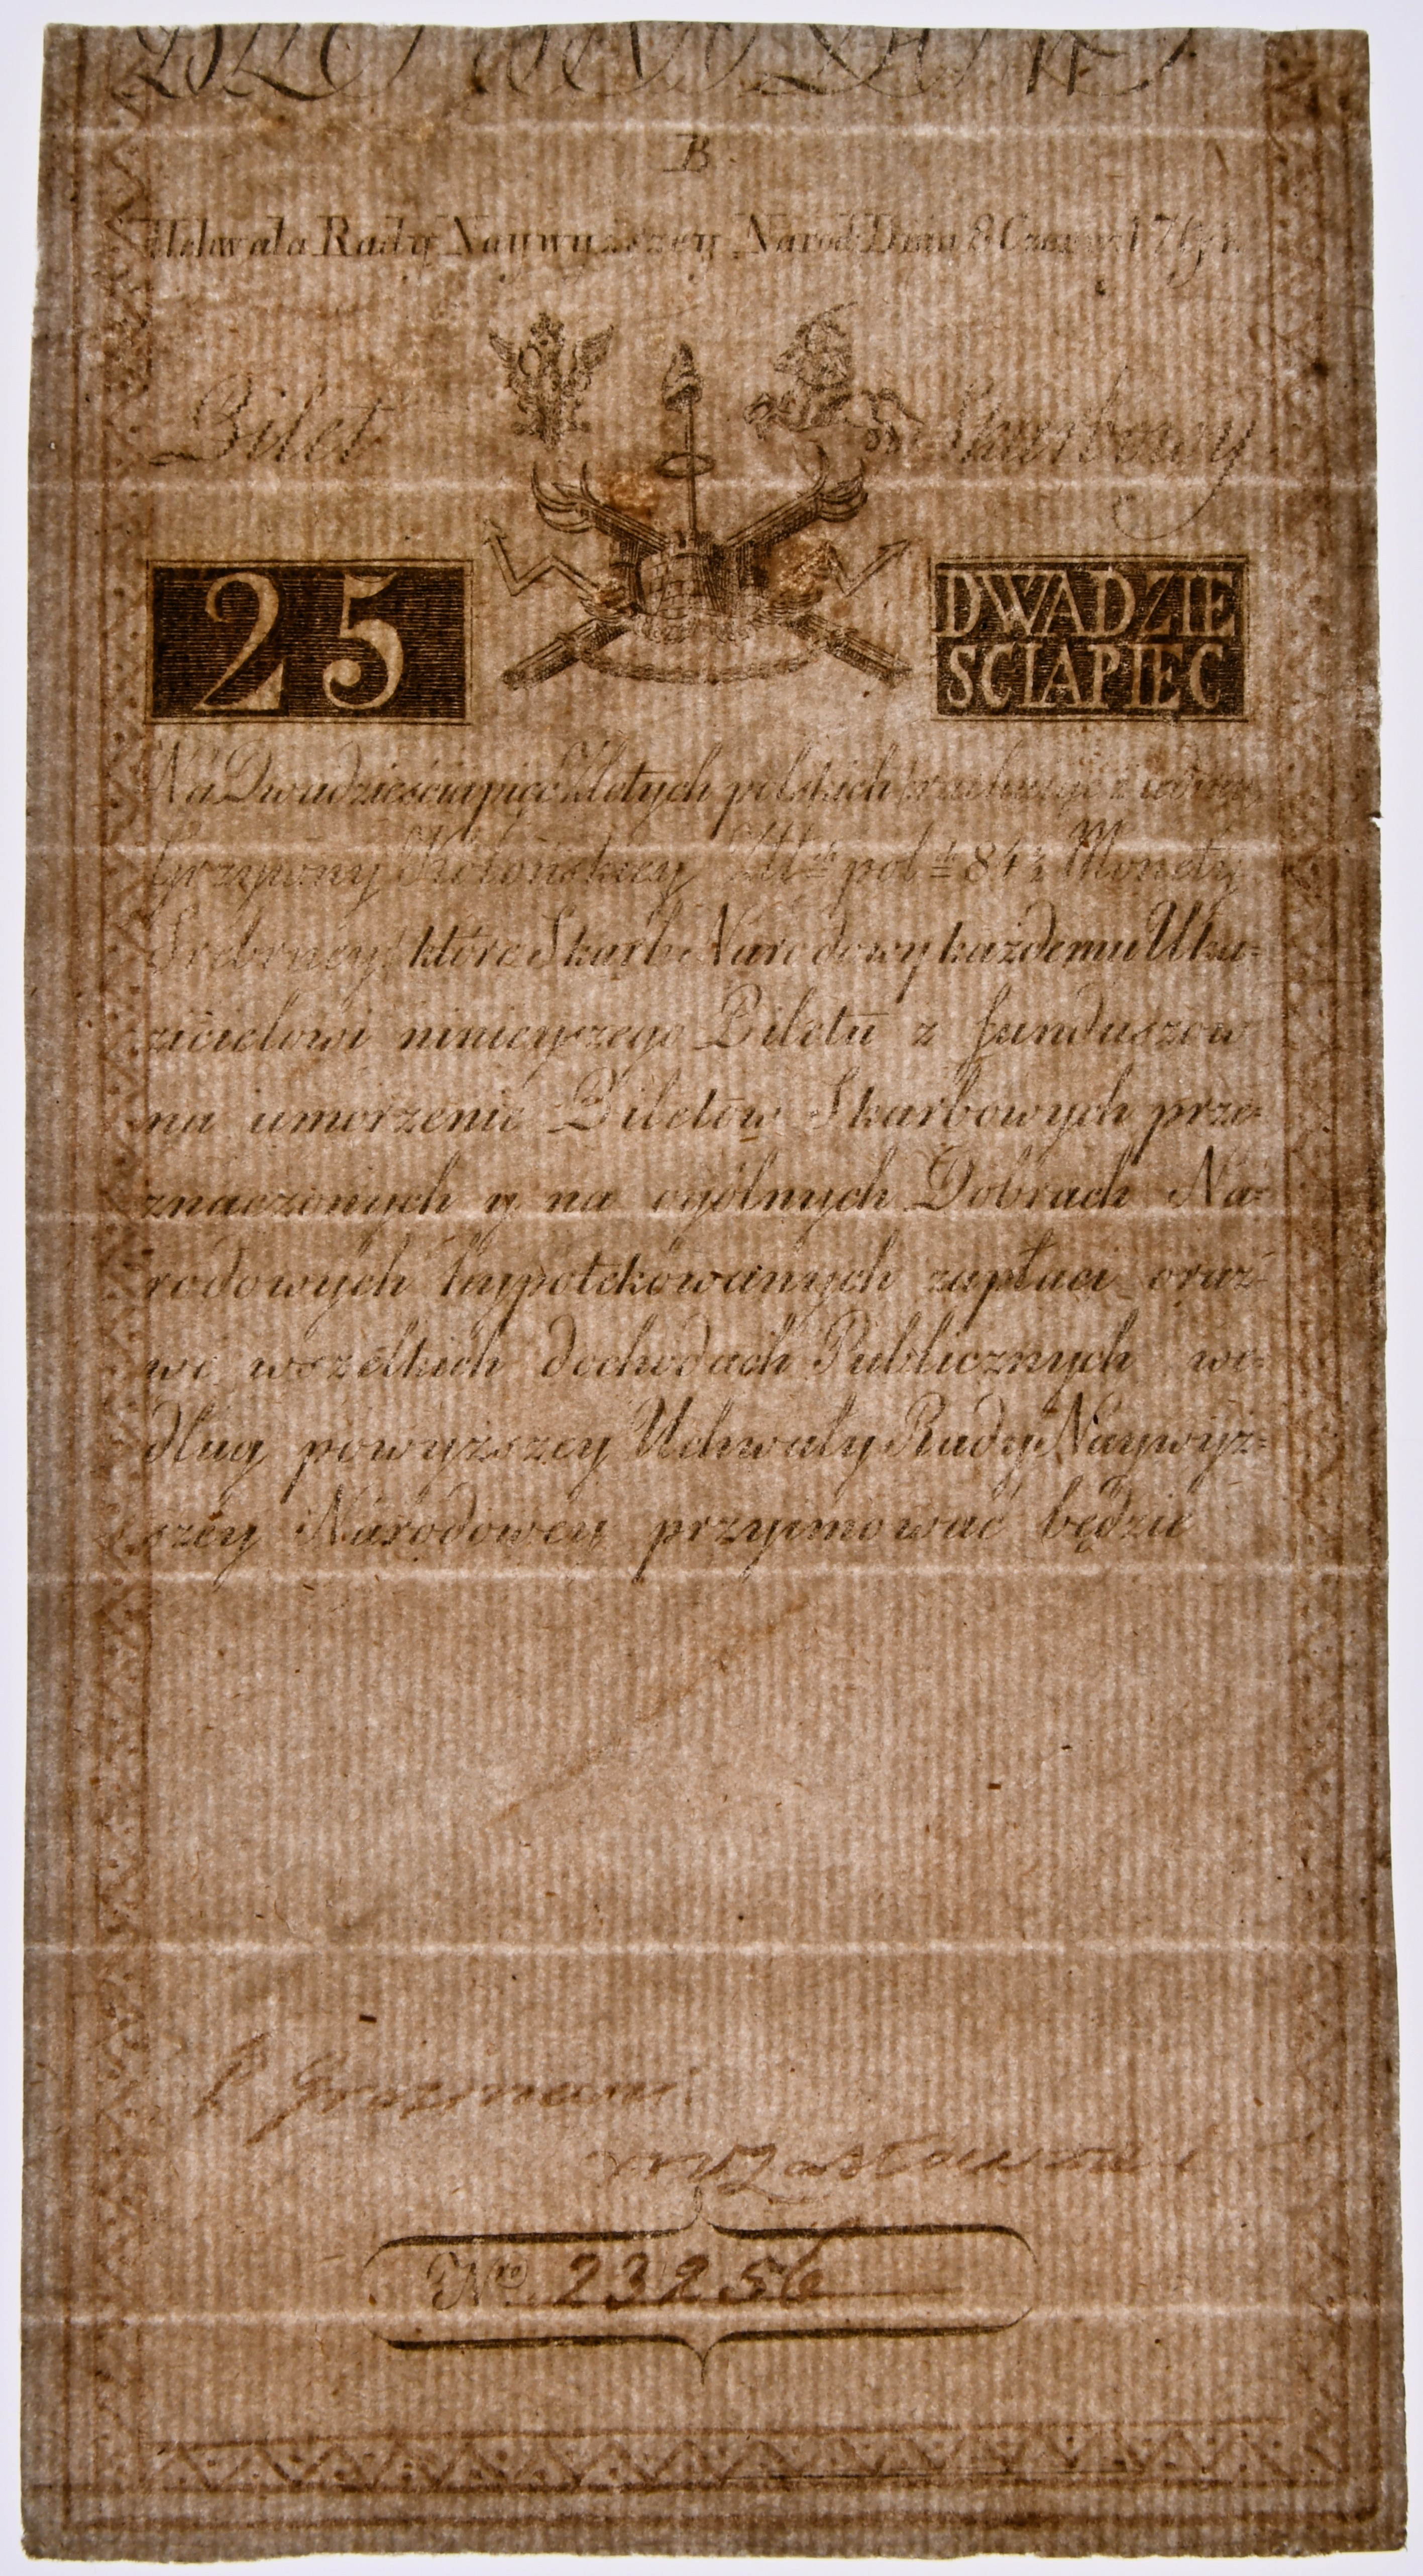 B.
Uchwała Rady Naywyższey Narod: Dnia 8 Czerwca 1794 r.
Bilet Skarbowy
25 DWADZIE
SCIAPIEC
Na Dwadzieściapięć Złotych polskich rachuiąc z
Grzywny Kolońskiey Zł: pol: 84½ Monety
Srebrney które Skarb Narodowy każdemu Uka=
zicielowi ninieyszego Biletu z funduszow
na umorzenie Biletów Skarbowych prze=
znaczonych y na ogólnych Dobrach Na=
rodowych hypotekowanych zapłaci oraz
we wszelkich dochodach Publicznych we=
dług powyższey Uchwały Rady Naywyż=
szey Narodowey przyimować będzie
Nro 23256